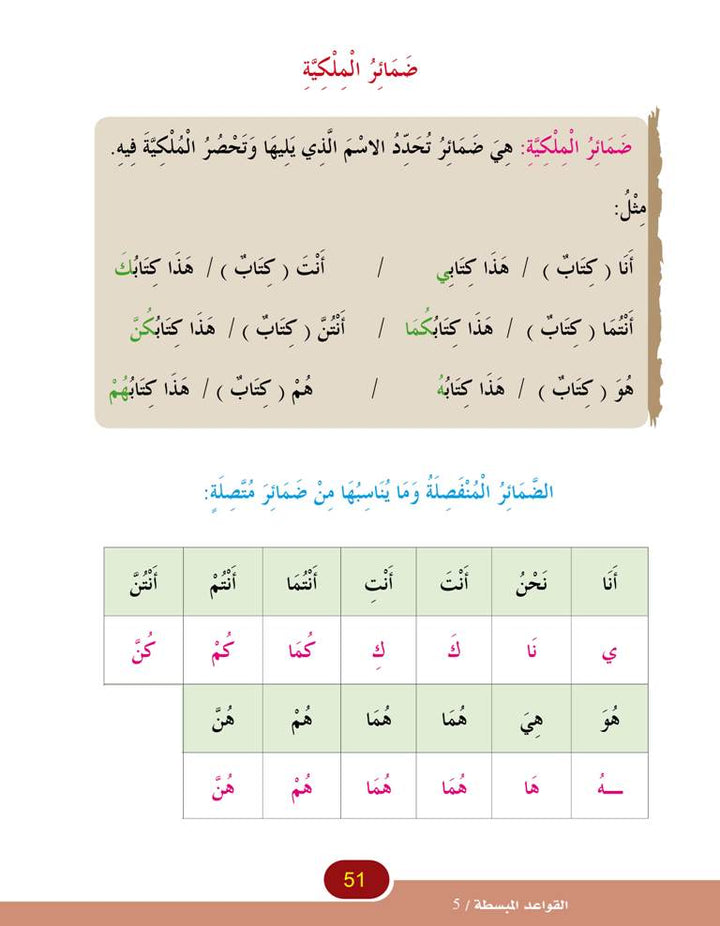 ضَمَائِرُ الْمِلْكِيَّةِ
ضَمَائِرُ الْمِلْكِيَّةِ: هِيَ ضَمَائِرُ تُحَدِّدُ الاسْمَ الَّذِي يَلِيهَا وَتَحْصُرُ الْمُلْكِيَّةَ فِيهِ.
مِثْلُ:
أَنَا ( كِتَابٌ ) / هَذَا كِتَابِي / أَنْتَ ( كِتَابٌ ) / هَذَا كِتَابُكَ
أَنْتُمَا ( كِتَابٌ ) / هَذَا كِتَابُكُمَا / أَنْتُنَّ ( كِتَابٌ ) / هَذَا كِتَابُكُنَّ
هُوَ ( كِتَابٌ ) / هَذَا كِتَابُهُ / هُمْ ( كِتَابٌ ) / هَذَا كِتَابُهُمْ
الضَّمَائِرُ الْمُنْفَصِلَةُ وَمَا يُنَاسِبُهَا مِنْ ضَمَائِرَ مُتَّصِلَةٍ:
أَنَا نَحْنُ أَنْتَ أَنْتِ أَنْتُمَا أَنْتُمْ أَنْتُنَّ
ي نَا كَ كِ كُمَا كُمْ كُنَّ
هُوَ هِيَ هُمَا هُمَا هُمْ هُنَّ
ـهُ هَا هُمَا هُمَا هُمْ هُنَّ
51
القواعد المبسطة / 5